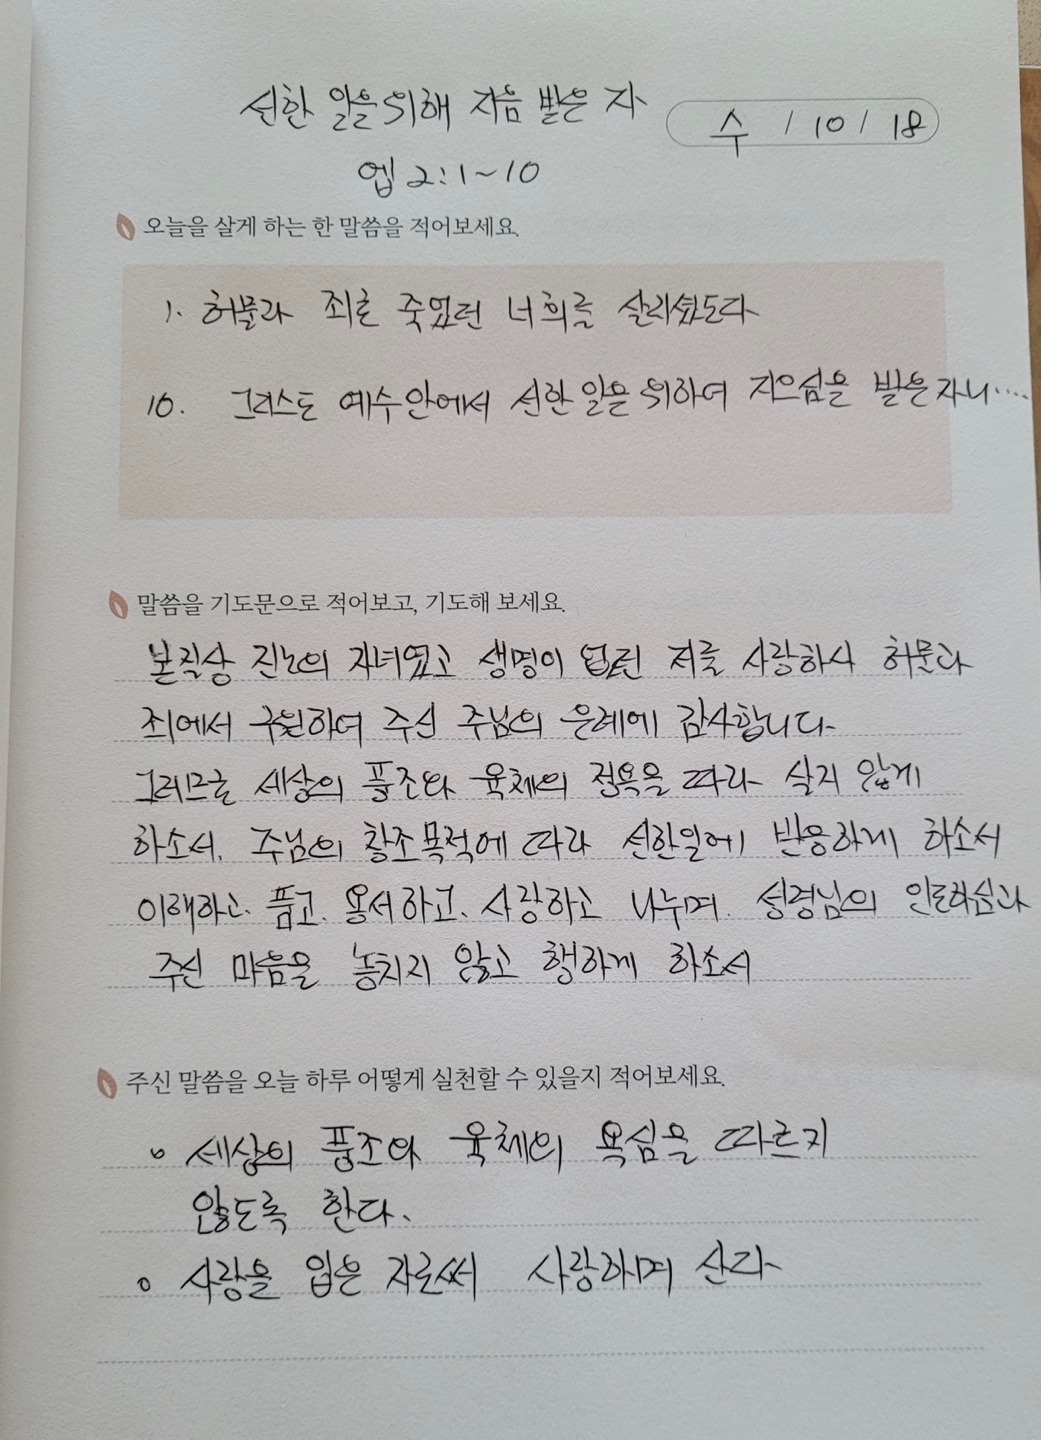 선한 일을 위해 지음 받은 자
수 / 10 / 18
엡 2:1~10
오늘을 살게 하는 한 말씀을 적어보세요.
1. 허물과 죄로 죽었던 너희를 살리셨도다
10. 그리스도 예수안에서 선한 일을 위하여 지으심을 받은 자니····
말씀을 기도문으로 적어보고, 기도해 보세요.
본질상 진노의 자녀였고 생명이 없던 저를 사랑하사 허물과
죄에서 구원하여 주신 주님의 은혜에 감사합니다.
그러므로 세상의 풍조와 육체의 정욕을 따라 살지 않게
하소서. 주님의 창조목적에 따라 선한일에 반응하게 하소서
이해하고. 품고. 용서하고. 사랑하고 나누며. 성령님의 인도하심과
주신 마음을 놓치지 않고 행하게 하소서
주신 말씀을 오늘 하루 어떻게 실천할 수 있을지 적어보세요.
○ 세상의 풍조와 육체의 욕심을 따르지
않도록 한다.
○ 사랑을 입은 자로써 사랑하며 산다